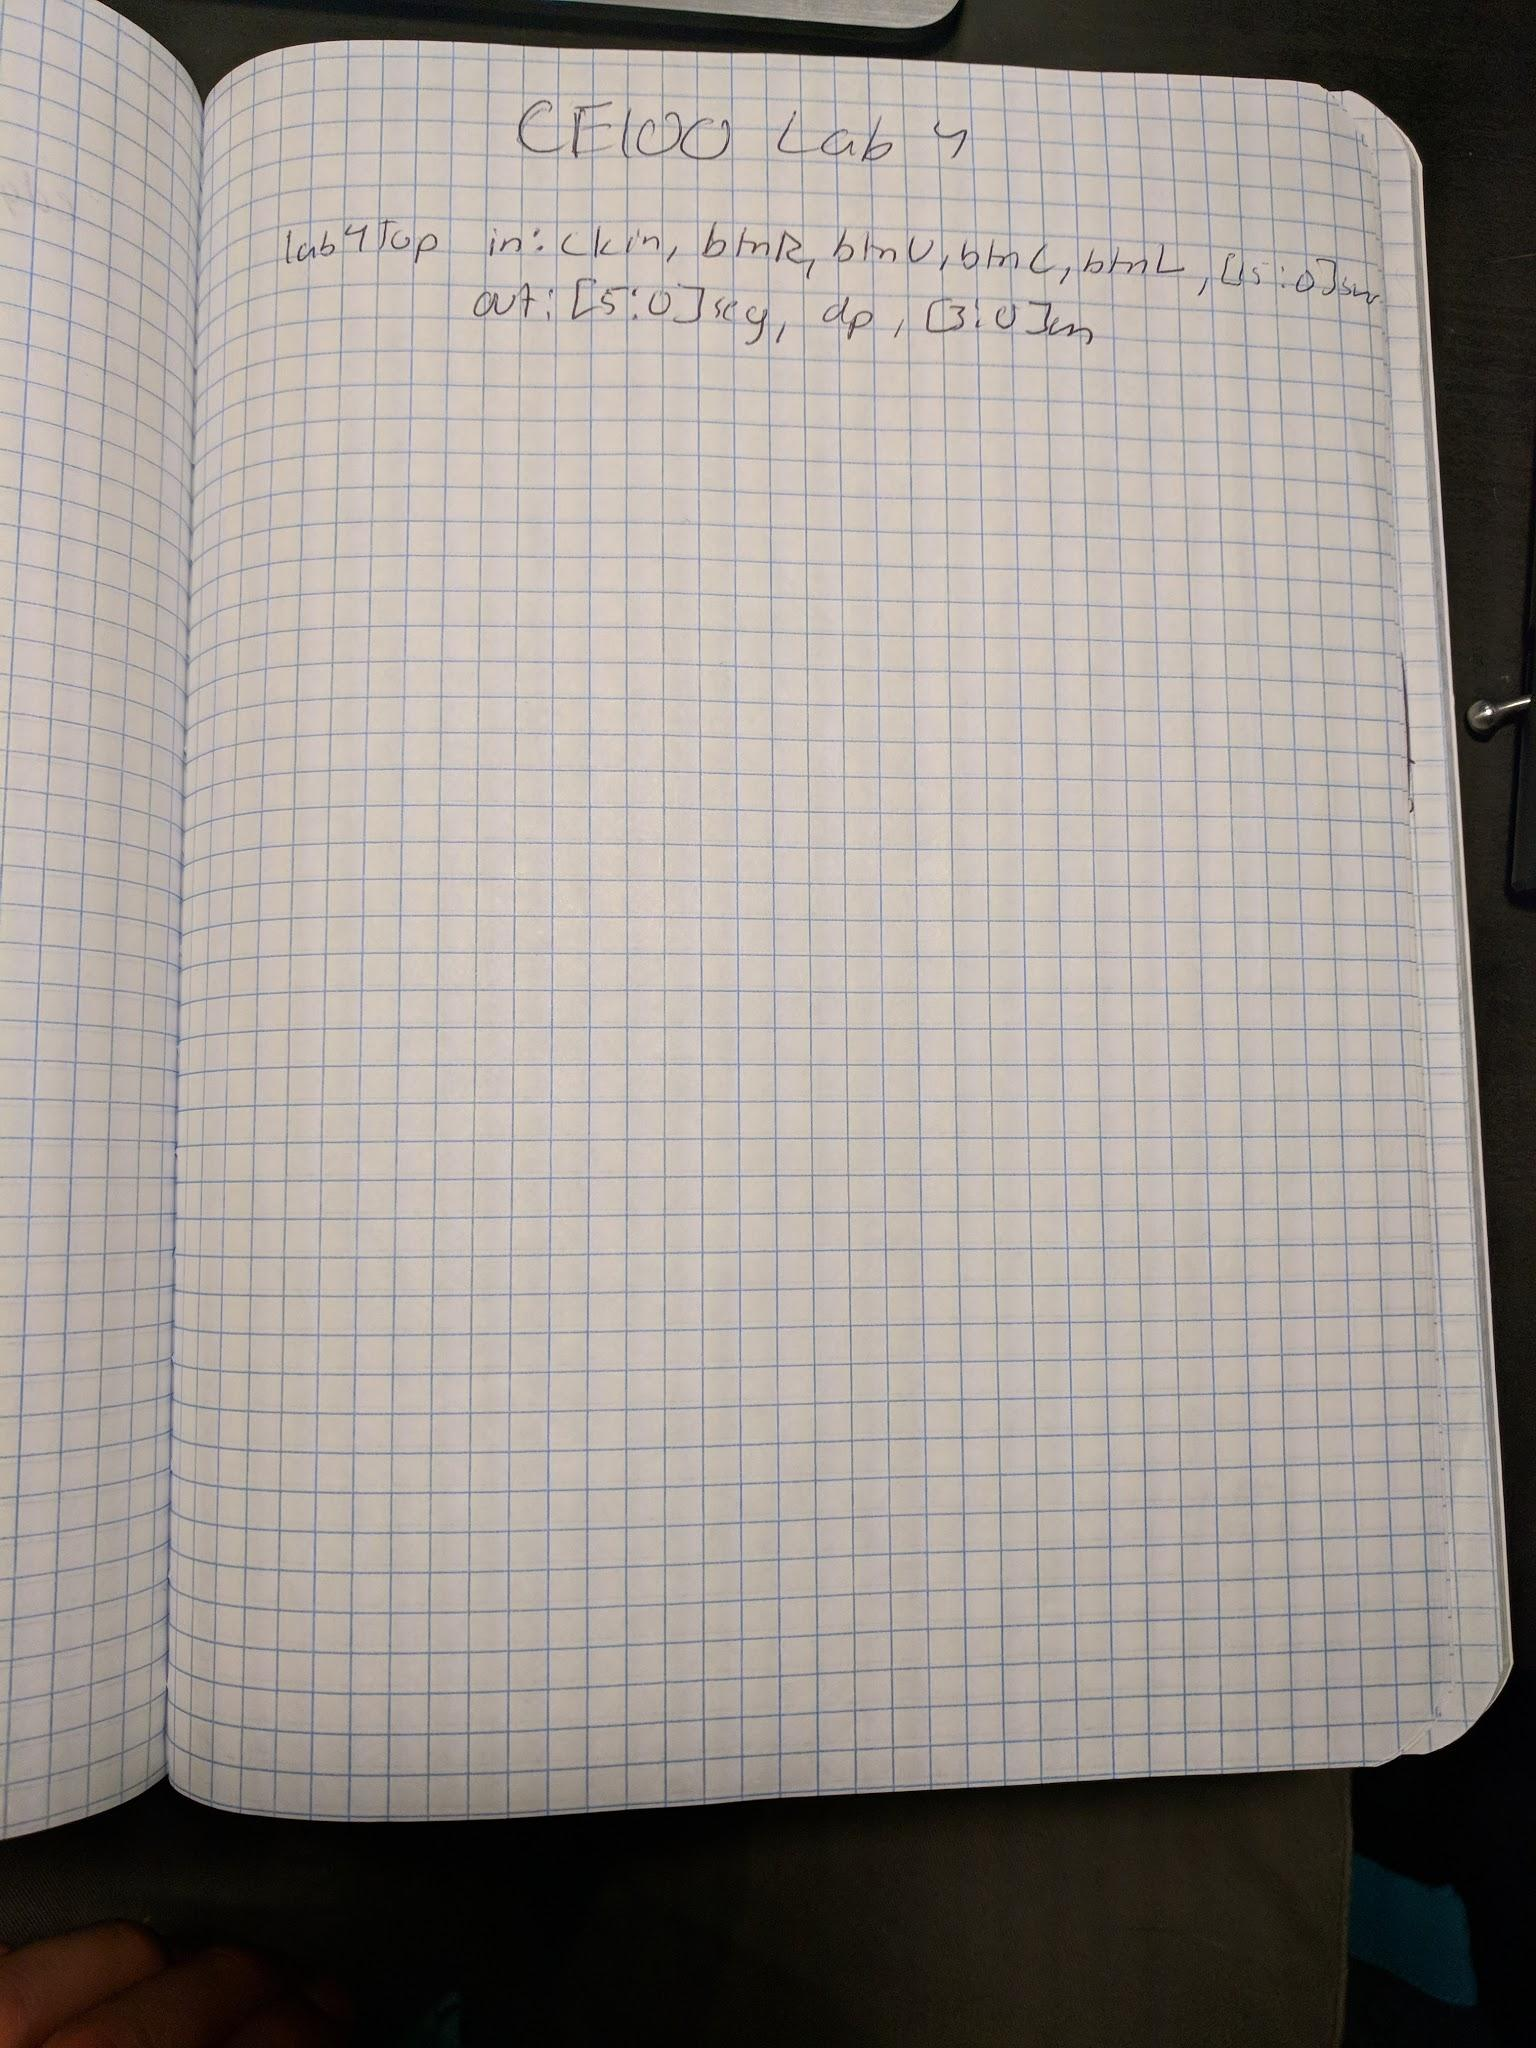 CE100 Lab 4
lab4Top in: clkin, btnR, btnU, btnC, btnL, [15:0]sw
out: [5:0]seg, dp, [3:0]an